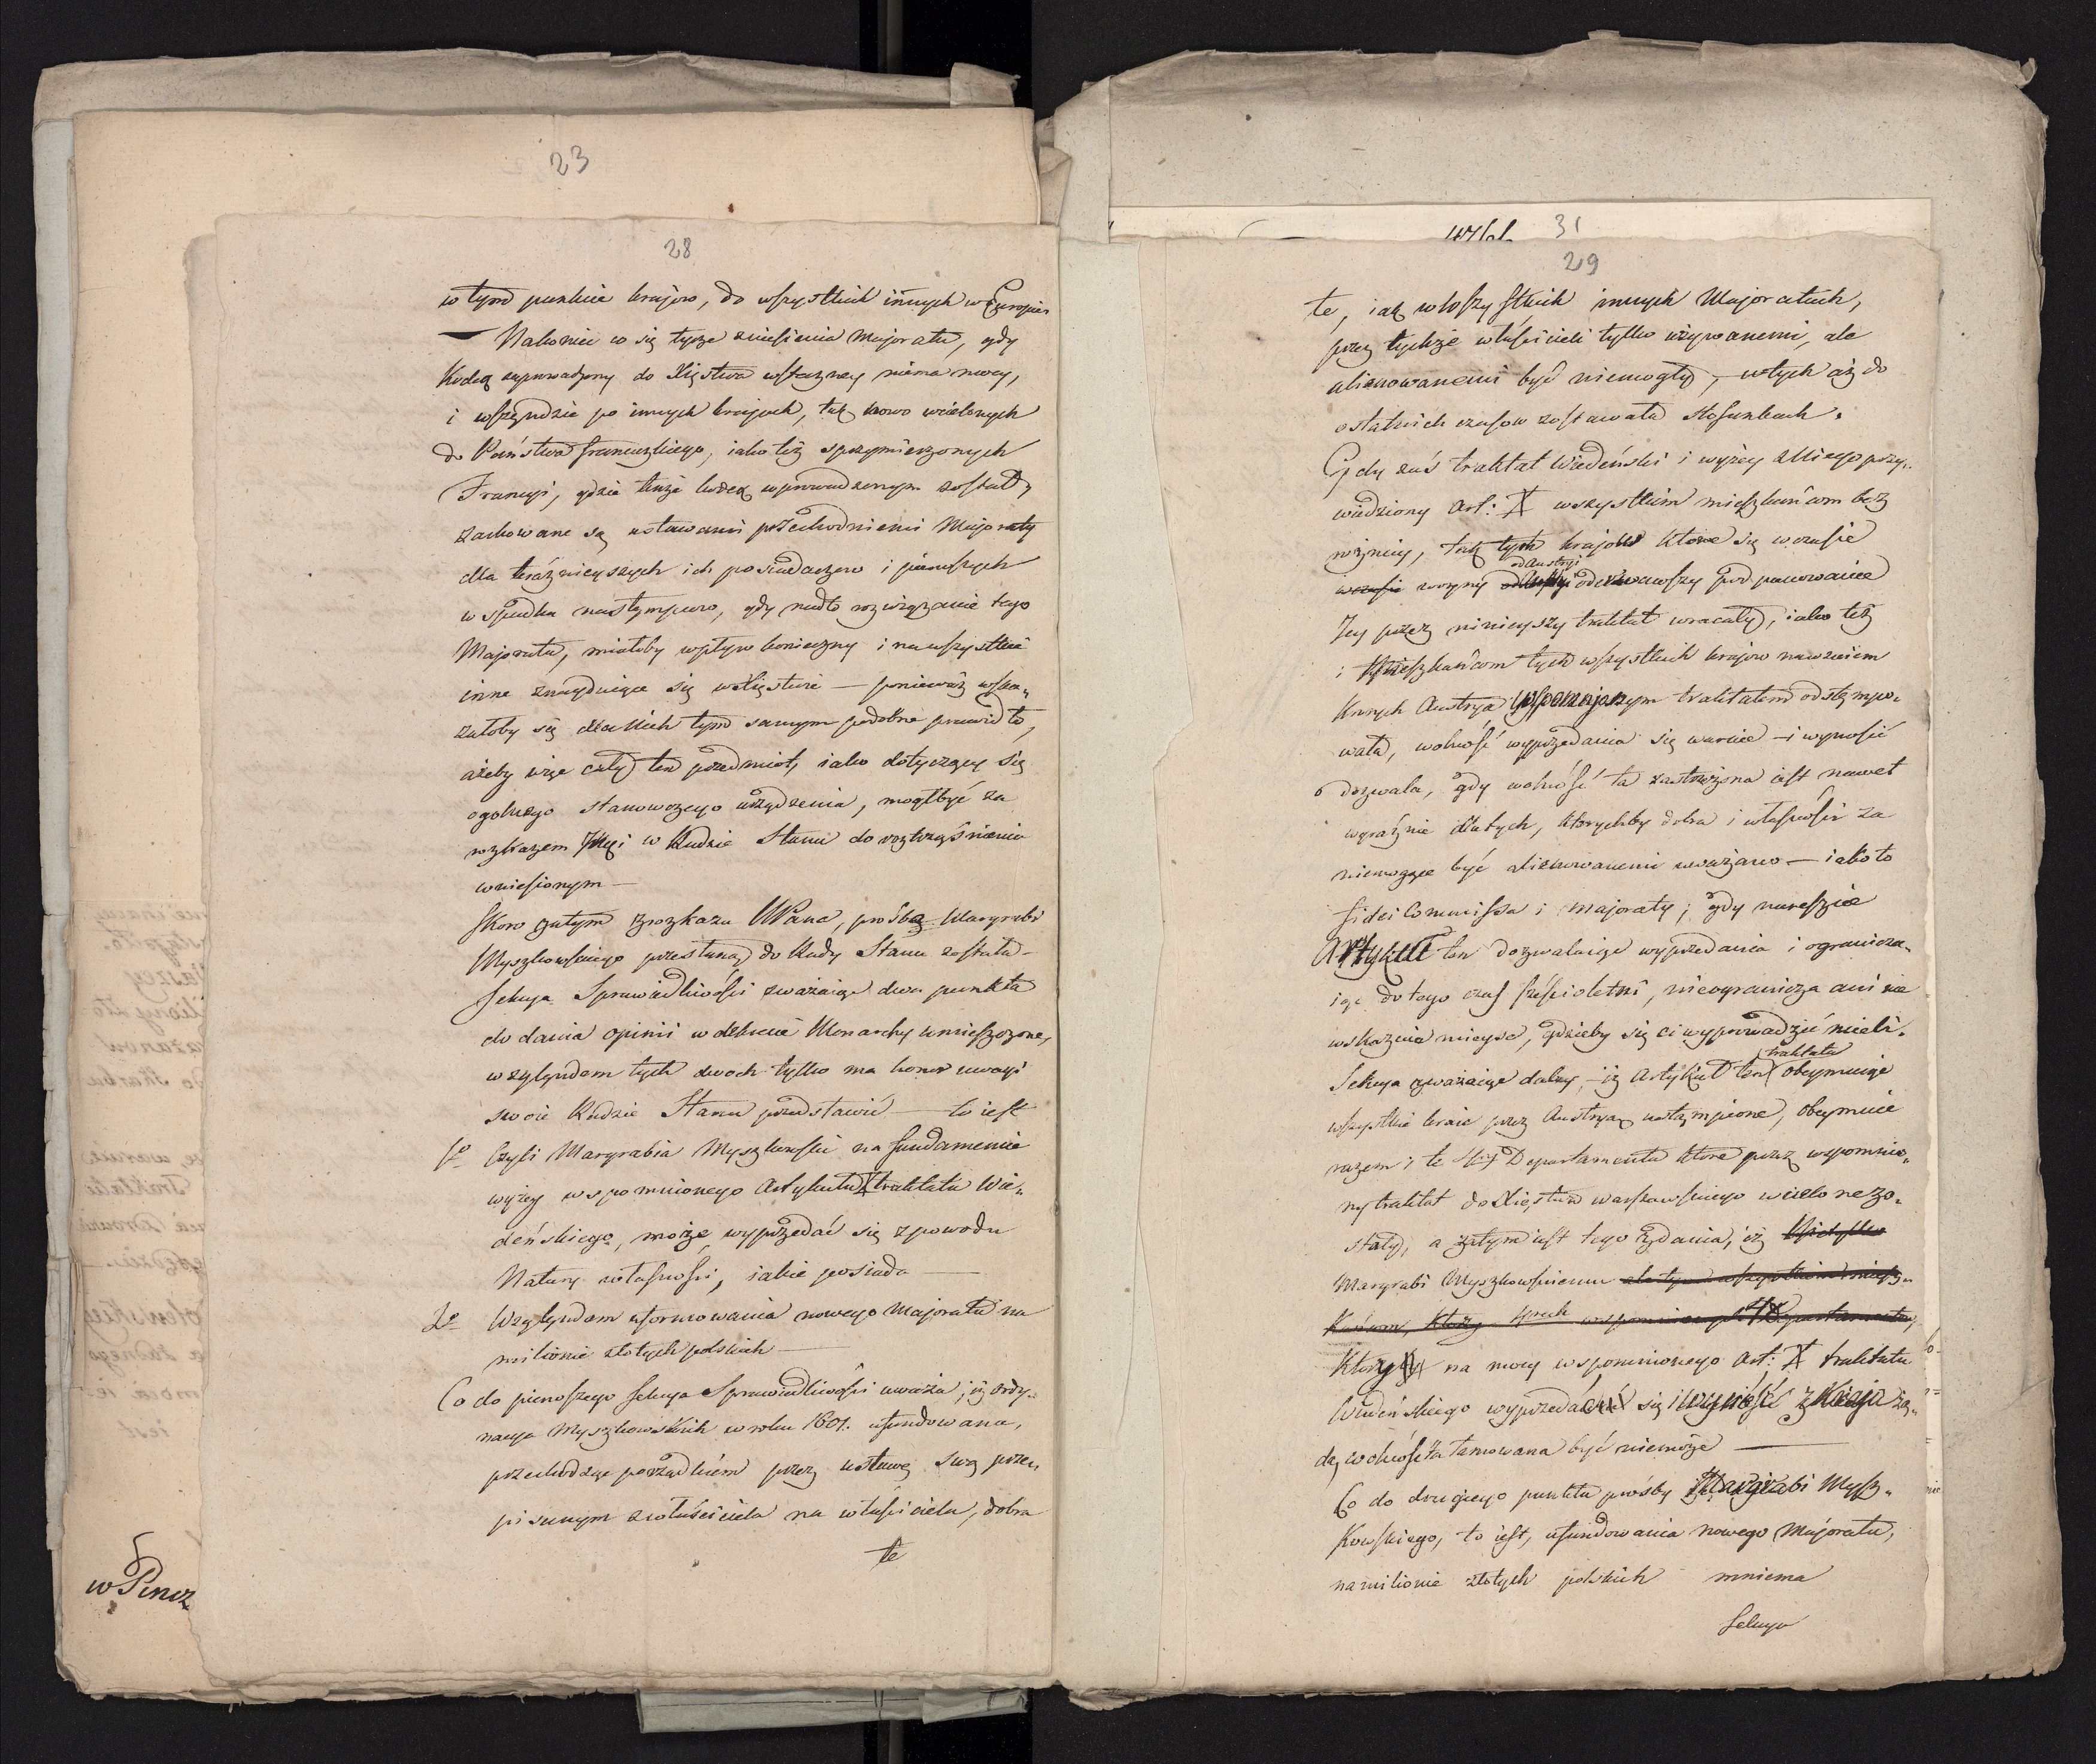 23
28
w tym punkcie kraiów, do wszystkich innych w Europie
— Nakoniec co się tycze zniesienia Majoratu, gdy
Kodex wprowadzony do Xięstwa wsteczney niema mocy,
i wszędzie po innych kraiach, tak nowo wcielonych
do Państwa francuzkiego, iako też sprzymierzonych
Francyi, gdzie tenże kodex wprowadzonym został,
zachowane są ustawami przechodniemi Majoraty
dla teraźnieyszych ich posiadaczow i pierwszych
w spadku następcow, gdy nadto rozwiązanie tego
Majoratu, miałoby wpływ konieczny i na wszystkie
inne znayduiące się w Xięstwie — ponieważ wska„
załoby się dla nich tym samym podobne prawidło,
ażeby więc cały ten przedmiot, iako dotyczący się
ogolnego stanowczego urządzenia, mogł być za
rozkazem JKMci w Radzie Stanu do roztrząśnienia
wniesionym —
Skoro zatym z rozkazu WPana, prośba Margrabi
Myszkowskiego przesłaną do Rady Stanu została —
Sekcya Sprawiedliwości zważaiąc dwa punkta
do dania opinii w dekrecie Monarchy umieszczone,
względem tych dwoch tylko ma honor uwagi
swoie Radzie Stanu przedstawić — to iest
1o Czyli Margrabia Myszkowski na fundamencie
wyżey wspomnionego Artykułu X traktatu Wie„
deńskiego, może wyprzedać się z powodu
Natury własności, iakie posiada —
2o Względem uformowania nowego Majoratu na
milionie złotych polskich —
Co do pierwszego Sekcya Sprawiedliwości uważa, iż ordy„
nacya Myszkowskich w roku 1601. ufundowana,
przechodząc porządkiem przez ustawę swą prze„
pisanym z właściciela na właściciela, dobra
te
w Pincz
47
31
29
te, iak w wszystkich innych Majoratach,
przez tychże właścicieli tylko używanemi, ale
alienowanemi być niemogły, w tych aż do
ostatnich czasow zostawała stosunkach.
Gdy zaś traktat Wiedeński i wyżey z Niego przy„
wiedziony Art: X wszystkim mieszkańcom bez
rożnicy, tak tych kraiow które się w czasie
od Austryi
w czasie woyny od Austryi oderwawszy pod panowanie
Jey przez ninieyszy traktat wracały, iako też
i Mieszkańcom tych wszystkich kraiow nawzaiem
których Austrya wspomnionym traktatem odstępo„
wała, wolność wyprzedania się warcie — i wynosić
dozwala, gdy wolność ta zastrzeżona iest nawet
wyraźnie dla tych, którychby dobra i własności za
niemogące być alienowanemi uważano — iakoto
fidei Commissa i majoraty; gdy nareszcie
Artykuł ten dozwalaiąc wyprzedania i ogranicza„
iąc do tego czas sześcioletni, nieogranicza ani nie
wskazuie mieysc, gdzieby się ci wyprowadzić mieli.
traktatu
Sekcya zważaiąc daley, iż Artykuł ten obeymuiąc
wszystkie kraie przez Austryą ustąpione, obeymuie
razem i te 4ry Departamenta które przez wspomnio„
ny traktat do Xięstwa warszawskiego wcielone zo„
stały, a zatym iest tego zdania, iż
Margrabi Myszkowskiemu
na mocy wspomnionego Art: X traktatu
Wiedeńskiego wyprzedać się i wynieść z Kraju żą„
da, wolność ta tamowana być niemoże —
Co do drugiego punktu prośby Margrabi Mysz„
kowskiego, to iest, ufundowania nowego Majoratu,
na milionie złotych polskich mniema
Sekcya